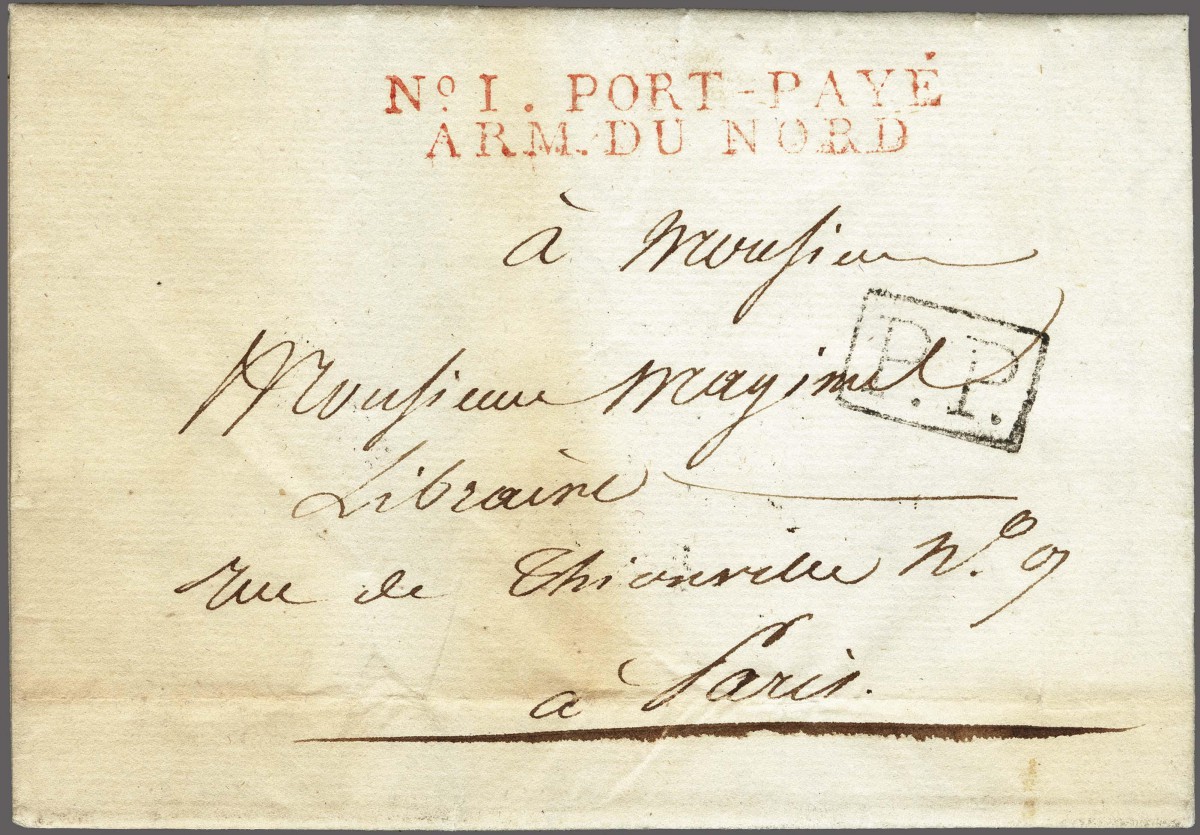 No. 1. PORT-PAYÉ
ARM. DU NORD
à Monsieur
P.P.
Monsieur Magimel
Libraire
rue de Thionville No. 9
à Paris.